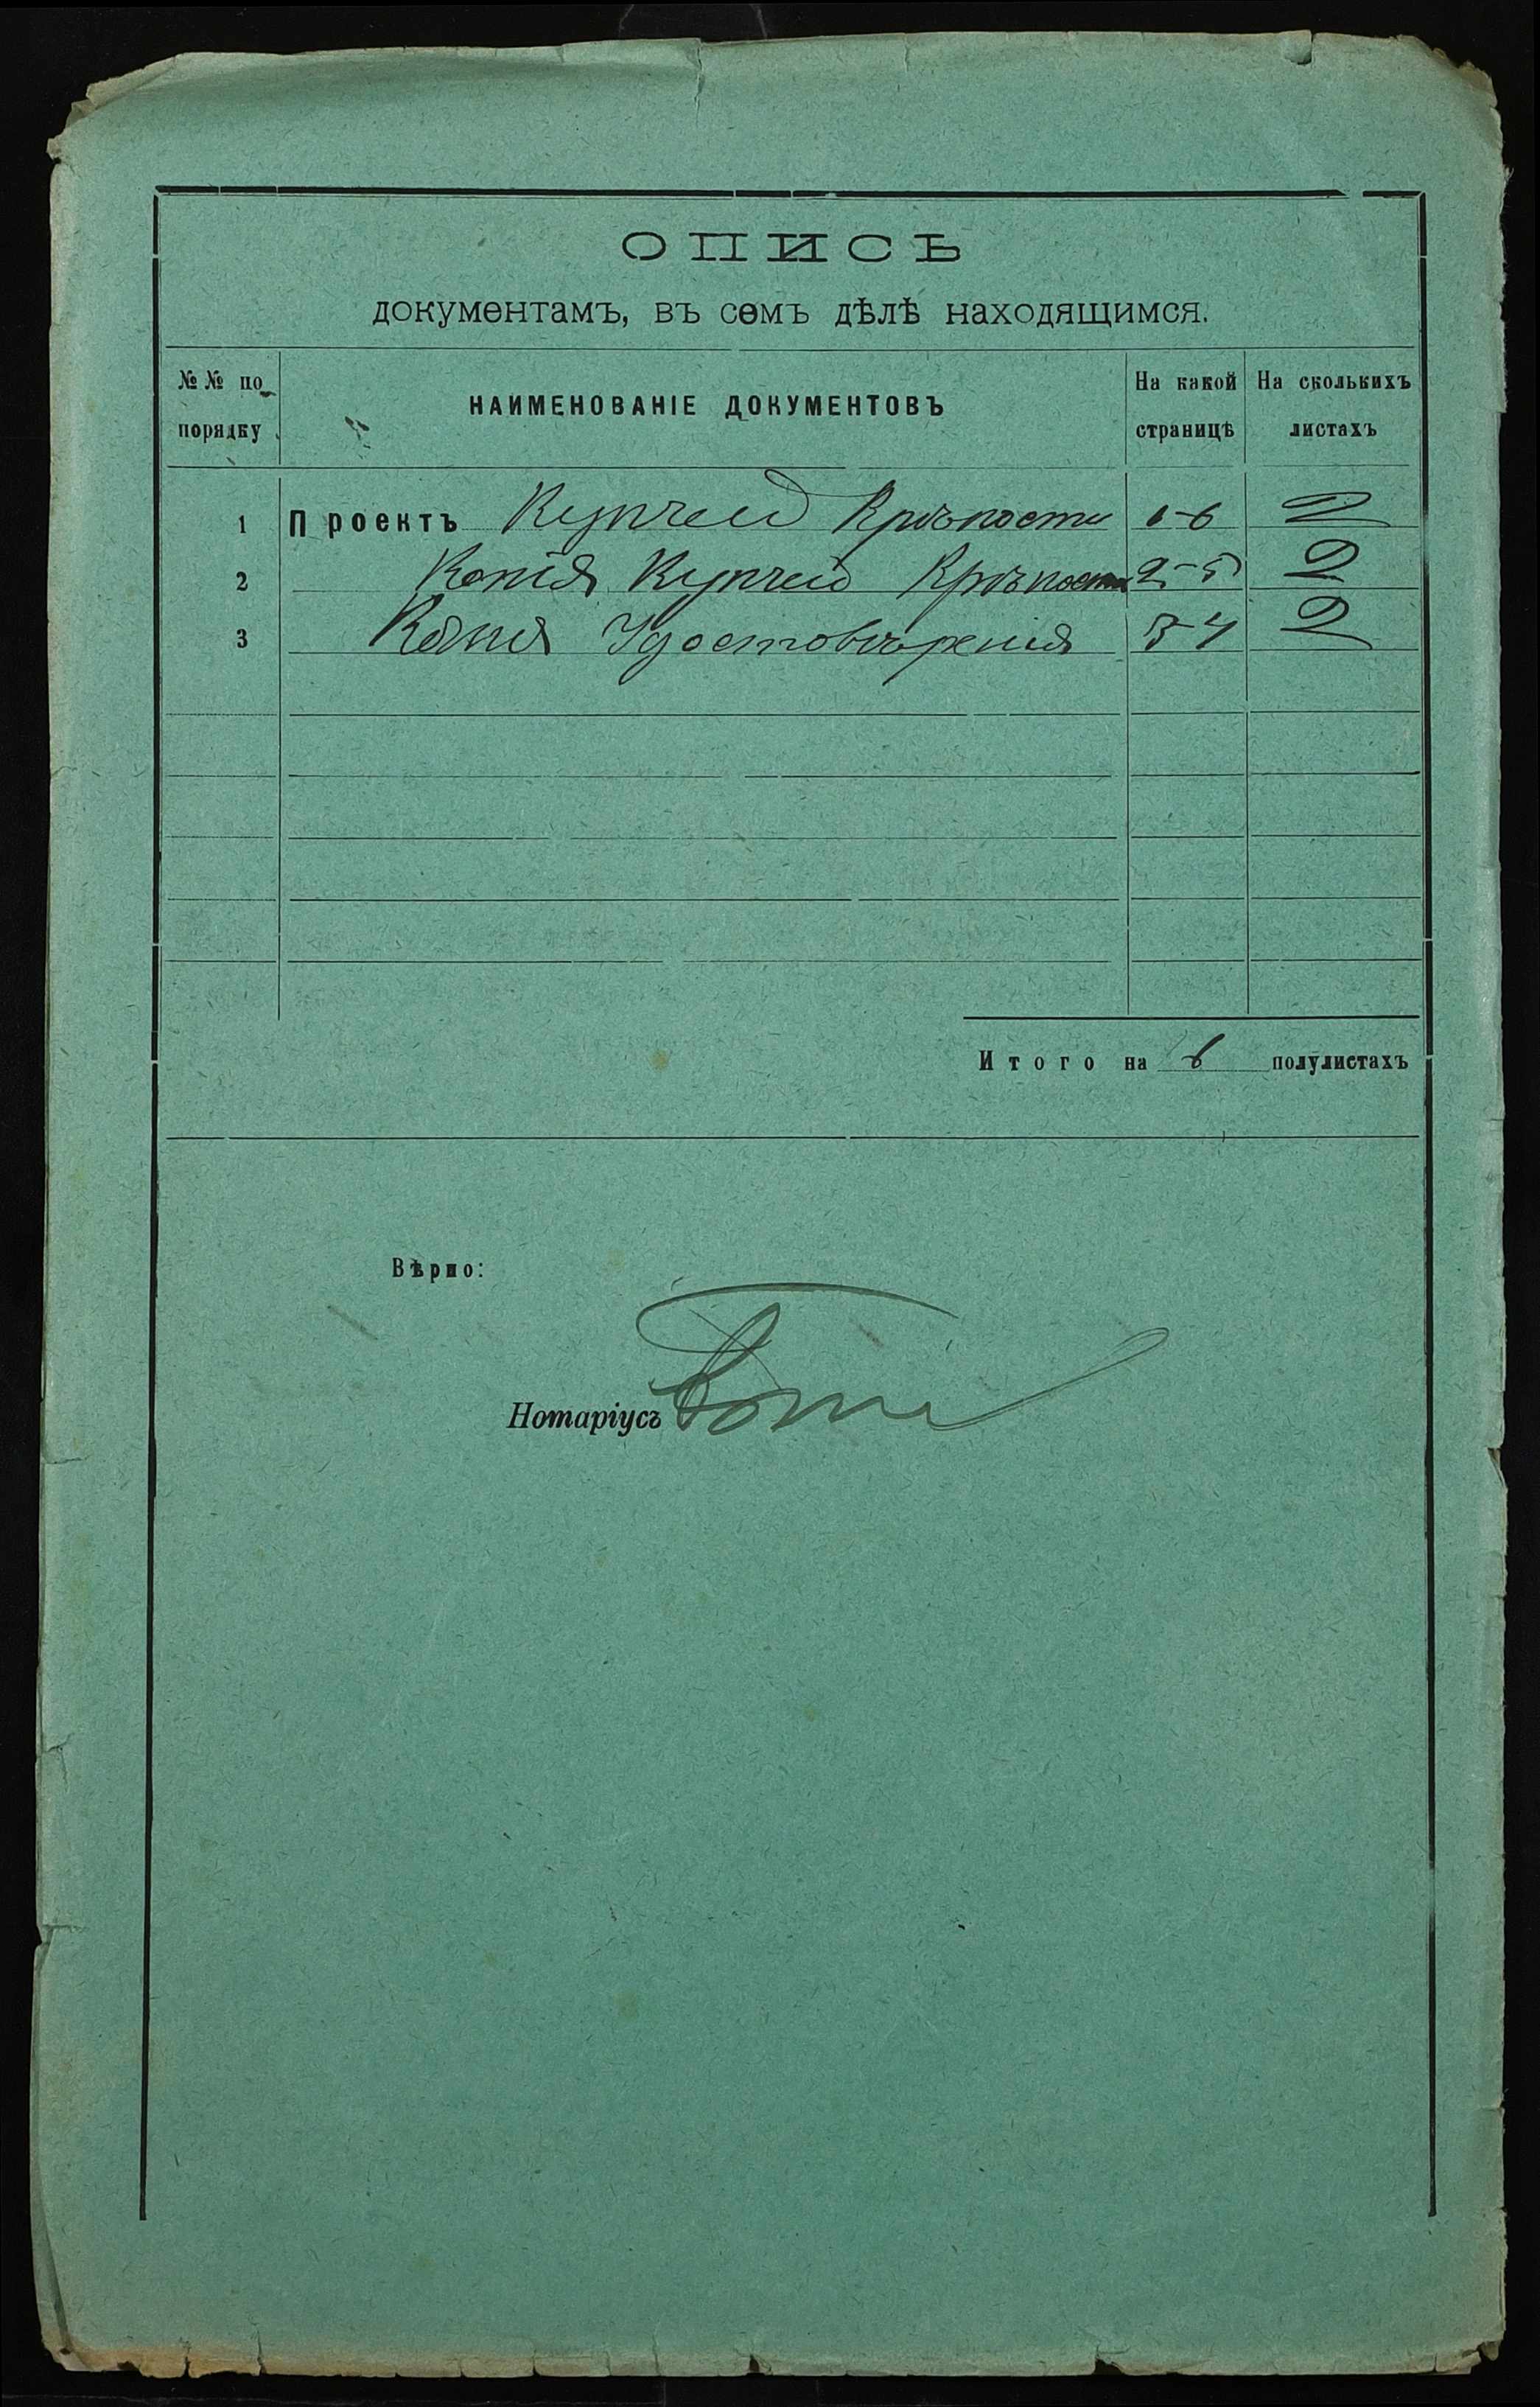 ОПИСЬ
документамъ, въ семъ дѣлѣ находящимся.
№№ по порядку
НАИМЕНОВАНІЕ ДОКУМЕНТОВЪ
На какой страницѣ
На сколькихъ листахъ
1 Проектъ Купчей Крѣпости 1-6 2
2 Копія Купчей Крѣпости 2-5 2
3 Копія Удостовѣренія 3-4 2
Итого на 6 полулистахъ
Вѣрно:
Нотаріусъ